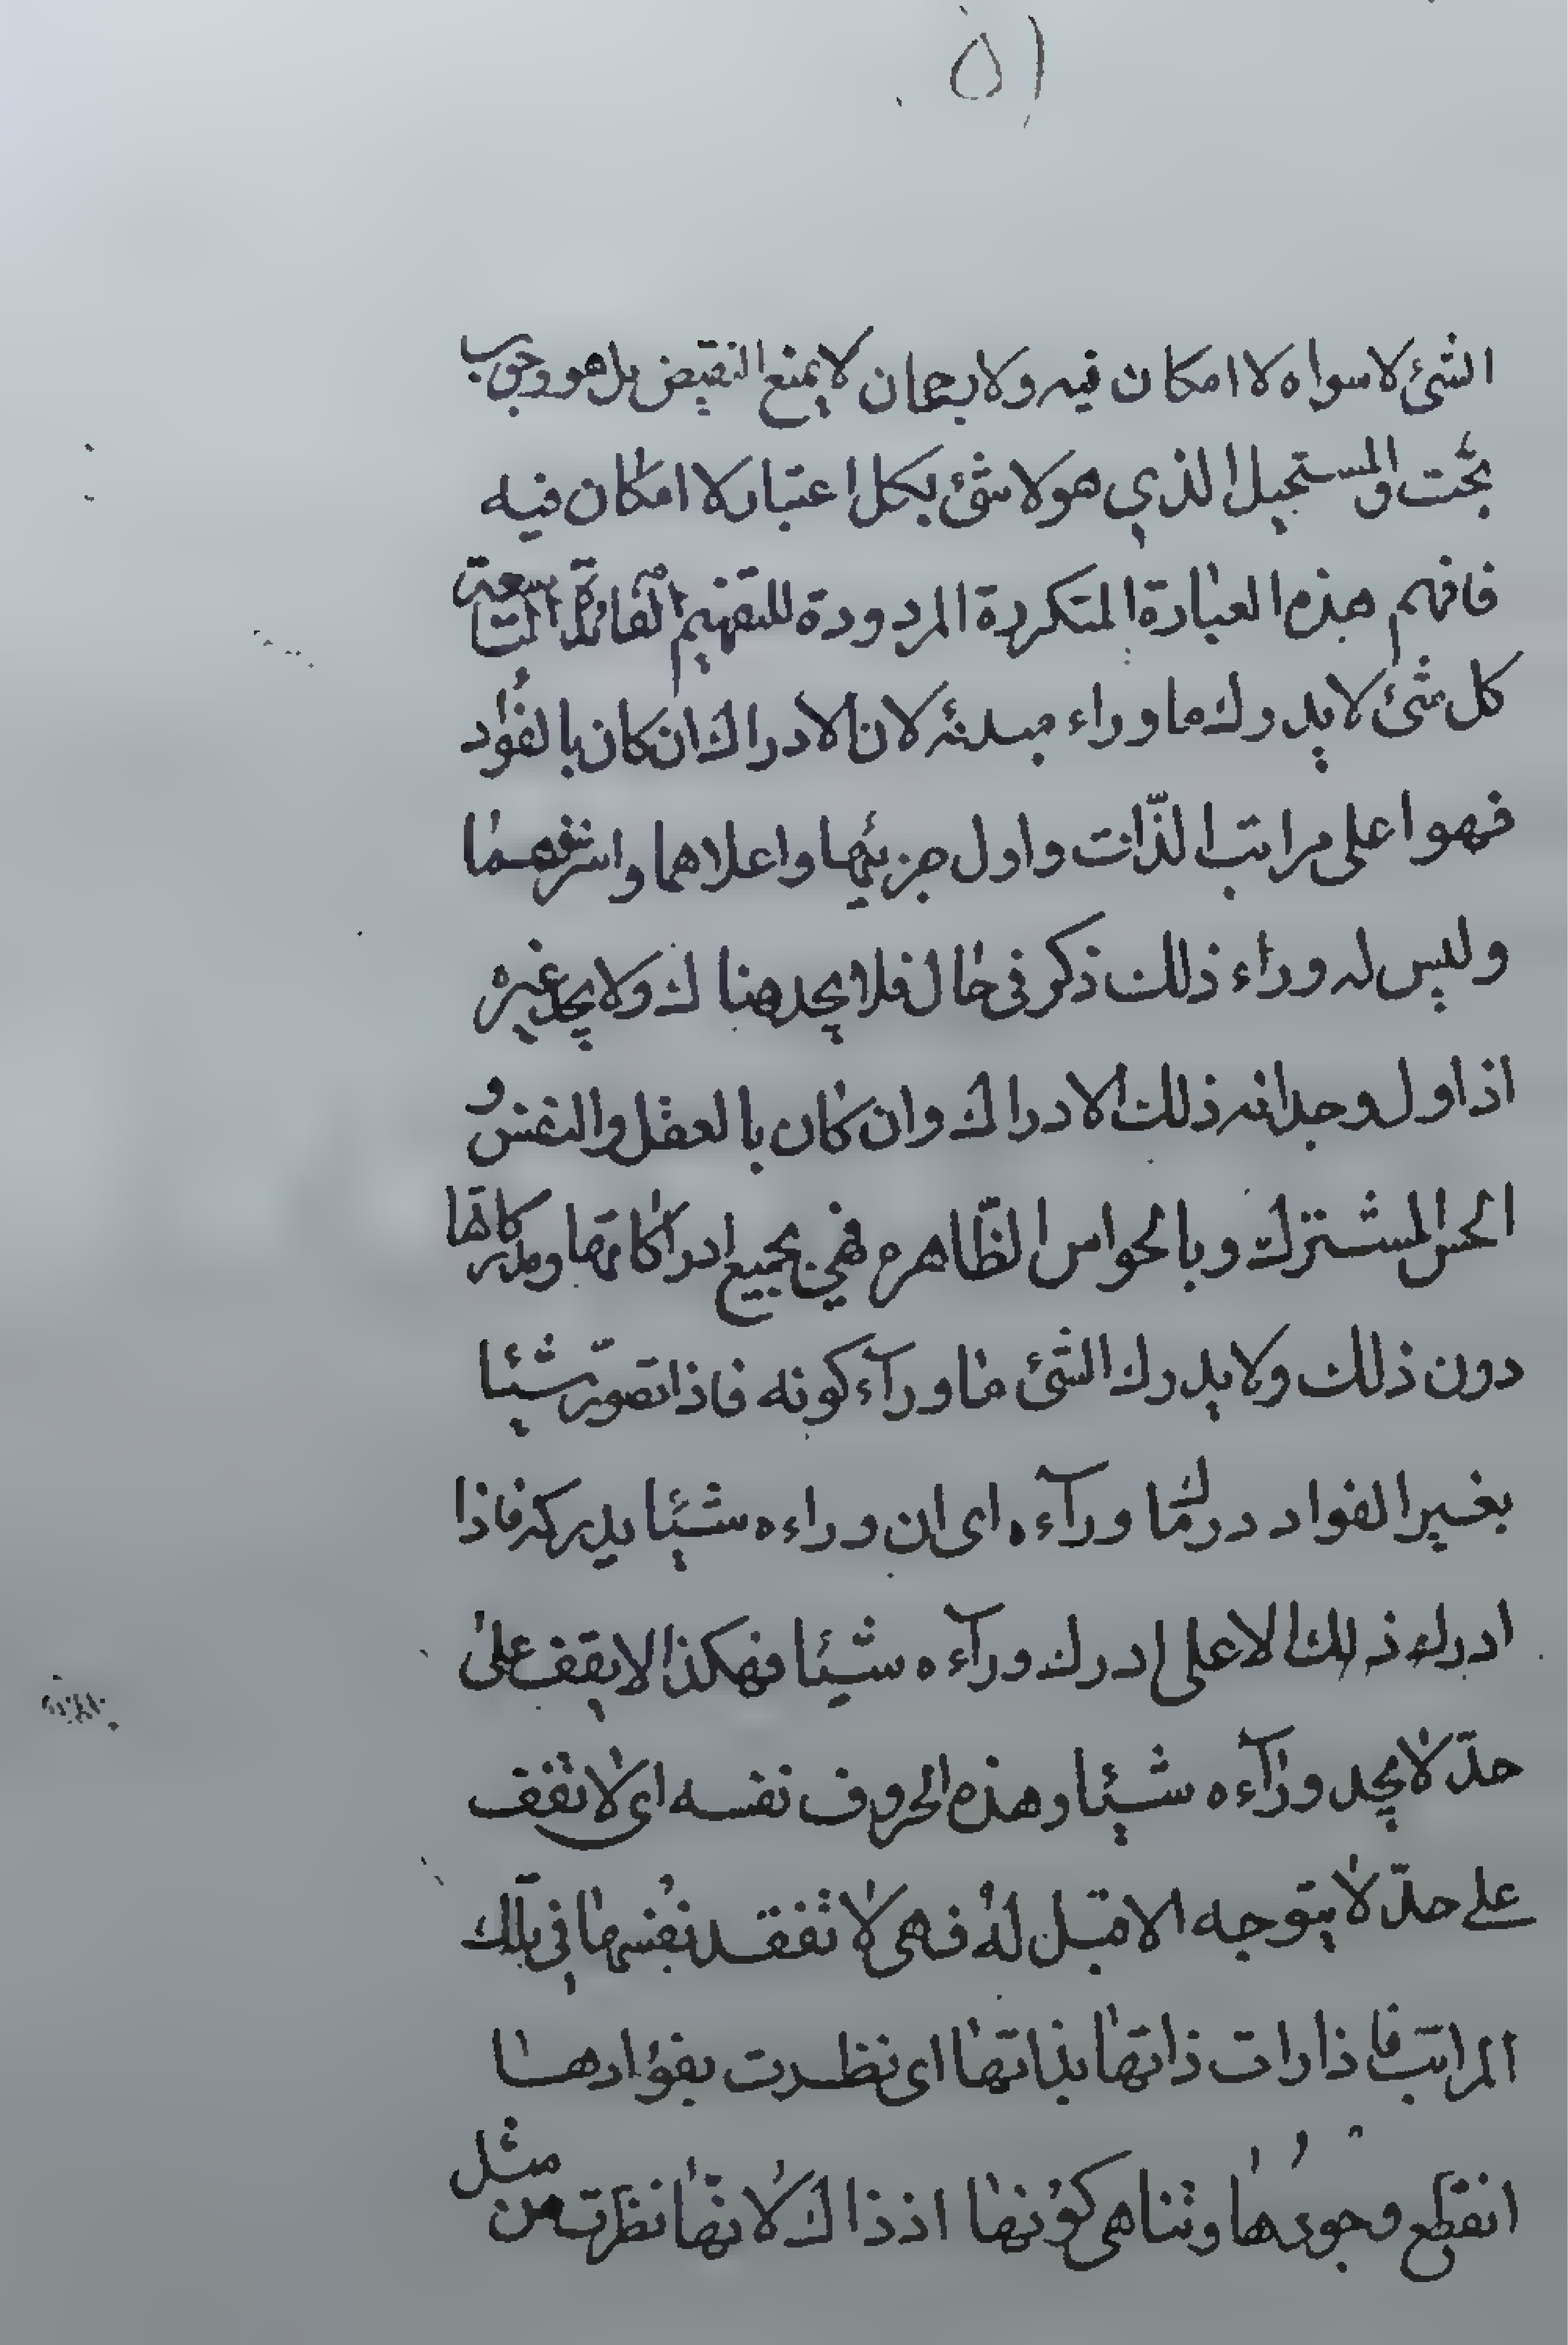 ١٥
الشئ لا سواه لا امكان فيه ولا رجحان لا يمنع النقيض بل هو وجوب
بحت والمستحيل الذي هو لا شئ بكل اعتبار لا امكان فيه
فافهم هذه العبارة المتكررة المردودة للتفهيم الفائدة التاسعة
كل شئ لا يدرك ما وراء مبدئه لان الادراك ان كان بالفؤاد
فهو اعلى مراتب الذّات واول جزئيها واعلاهما واشرفهما
وليس له وراء ذلك ذكر فى حال فلا يجد هناك ولا يجد غيره
اذ اول وجدانه ذلك الادراك وان كان بالعقل والنفس و
الحس المشترك وبالحواس الظّاهره فهي بجميع ادراكاتها ومدركاتها
دون ذلك ولا يدرك الشئ ما ورآء كونه فاذا تصوّر شيئا
بغير الفواد درك ما ورآءه اى ان وراءه شيئا يدركه فاذا
ادرك ذلك الاعلى ادرك ورآءه شيئا فهكذا لا يقف على
حدّ لا يجد ورآءه شيئا وهذه الحروف نفسه اى لا تقف
على حدّ لا يتوجه الا قبل له فهى لا تفقد نفسها فى تلك
المراتب فاذا رات ذاتها بذاتها اى نظرت بفؤادها
انقطع وجودها وتناهى كونها اذ ذاك لانها نظرت من مثل